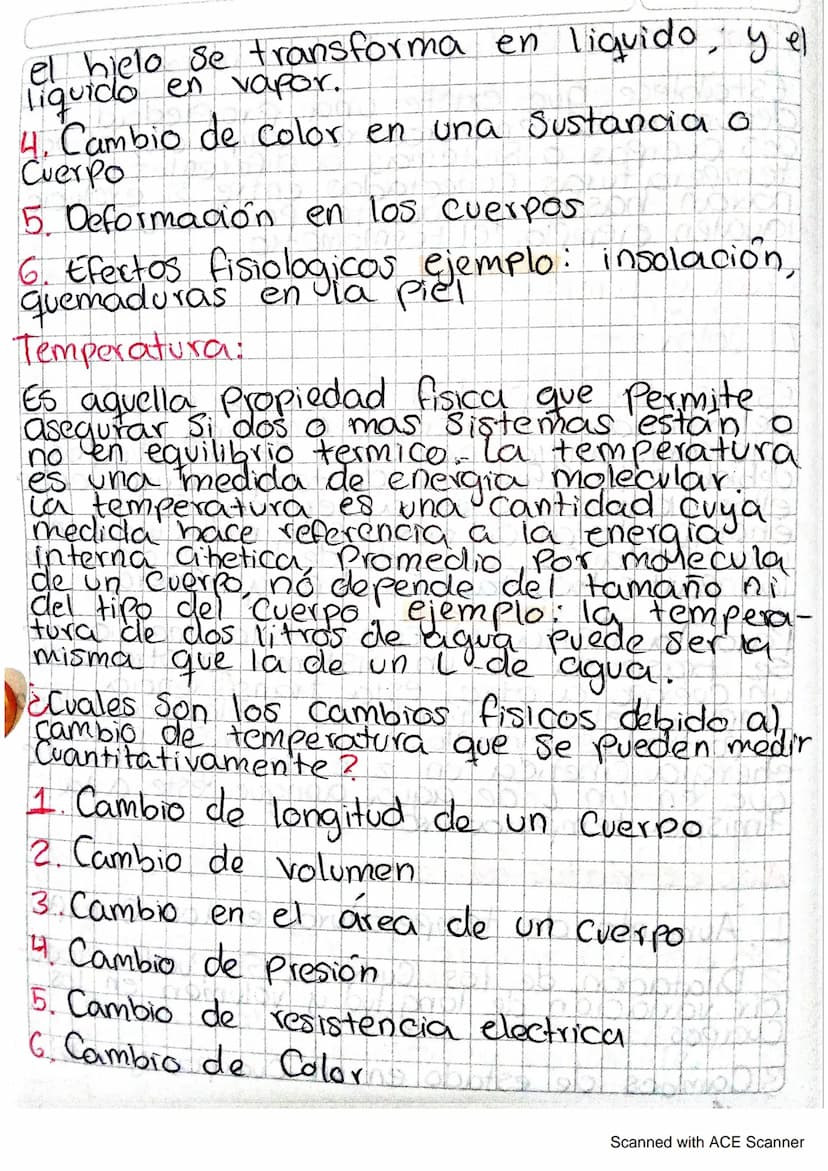 el hielo se transforma en liquido, y el
liquido en vapor.
4. Cambio de color en una sustancia o
cuerpo
5. Deformación en los cuerpos
6. Efectos fisiologicos ejemplo: insolación,
quemaduras en la piel
Temperatura:
Es aquella propiedad fisica que permite
asegurar si dos o mas sistemas estan o
no en equilibrio termico. La temperatura
es una medida de energia molecular.
la temperatura es una cantidad cuya
medida hace referencia a la energia
interna cinetica, promedio por molecula
de un cuerpo, no depende del tamaño ni
del tipo del cuerpo. ejemplo: la tempera-
tura de dos litros de agua puede ser la
misma que la de un L de agua.
¿Cuales son los cambios fisicos debido al
cambio de temperatura que se pueden medir
cuantitativamente?
1. Cambio de longitud de un cuerpo
2. Cambio de volumen
3. Cambio en el área de un cuerpo
4. Cambio de presión
5. Cambio de resistencia electrica
6. Cambio de Color
Scanned with ACE Scanner